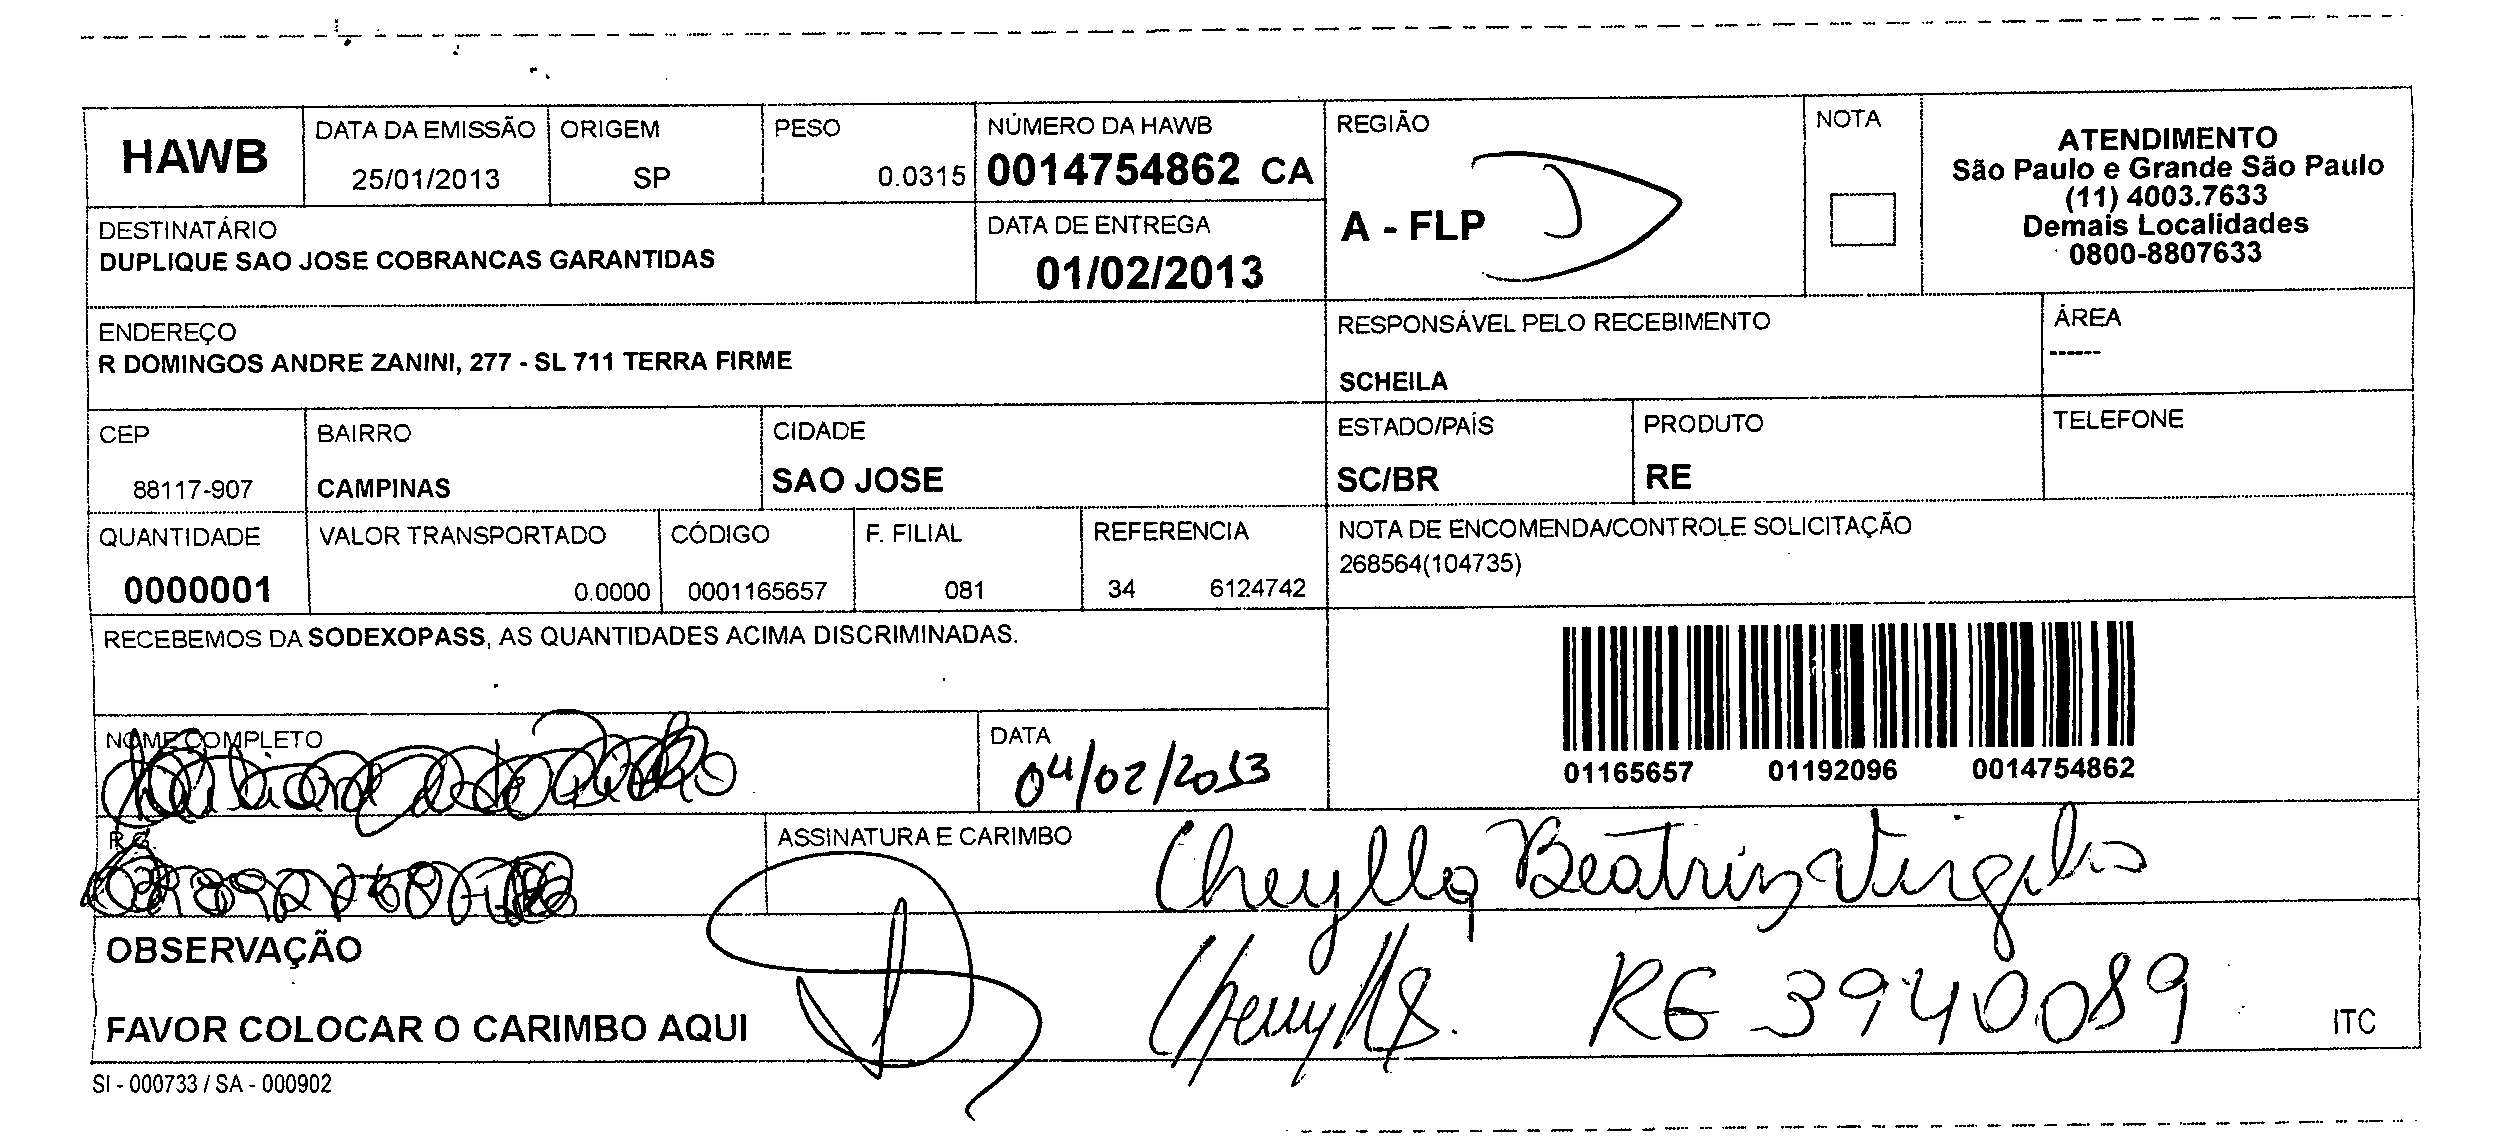 HAWB
DATA DA EMISSÃO
25/01/2013
ORIGEM
SP
PESO
0.0315
NÚMERO DA HAWB
0014754862 CA
REGIÃO
A - FLP
NOTA
ATENDIMENTO
São Paulo e Grande São Paulo
(11) 4003.7633
Demais Localidades
0800-8807633
DESTINATÁRIO
DUPLIQUE SAO JOSE COBRANCAS GARANTIDAS
DATA DE ENTREGA
01/02/2013
ENDEREÇO
R DOMINGOS ANDRE ZANINI, 277 - SL 711 TERRA FIRME
RESPONSÁVEL PELO RECEBIMENTO
SCHEILA
ÁREA
------
CEP
88117-907
BAIRRO
CAMPINAS
CIDADE
SAO JOSE
ESTADO/PAÍS
SC/BR
PRODUTO
RE
TELEFONE
QUANTIDADE
0000001
VALOR TRANSPORTADO
0.0000
CÓDIGO
0001165657
F. FILIAL
081
REFERENCIA
34 6124742
NOTA DE ENCOMENDA/CONTROLE SOLICITAÇÃO
268564(104735)
RECEBEMOS DA SODEXOPASS, AS QUANTIDADES ACIMA DISCRIMINADAS.
01165657 01192096 0014754862
NOME COMPLETO
DATA
04/02/2013
R.G.
ASSINATURA E CARIMBO
Cheylla Beatriz Virgilio
RG 3940089
OBSERVAÇÃO
FAVOR COLOCAR O CARIMBO AQUI
ITC
SI - 000733 / SA - 000902